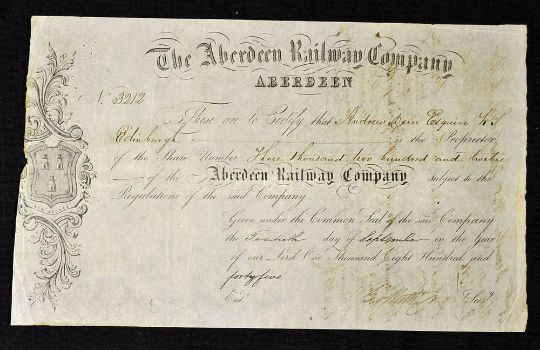 The Aberdeen Railway Company
ABERDEEN
No. 3212
These are to Certify that Andrew Esquire W.S
Edinburgh is the Proprietor
of the Share Number Three thousand, two hundred and twelve
of the Aberdeen Railway Company Subject to the
Regulations of the said Company
Given under the Common Seal of the said Company
the Twentieth day of September in the year
of our Lord One Thousand Eight Hundred and
forty five
Entd. Secy.